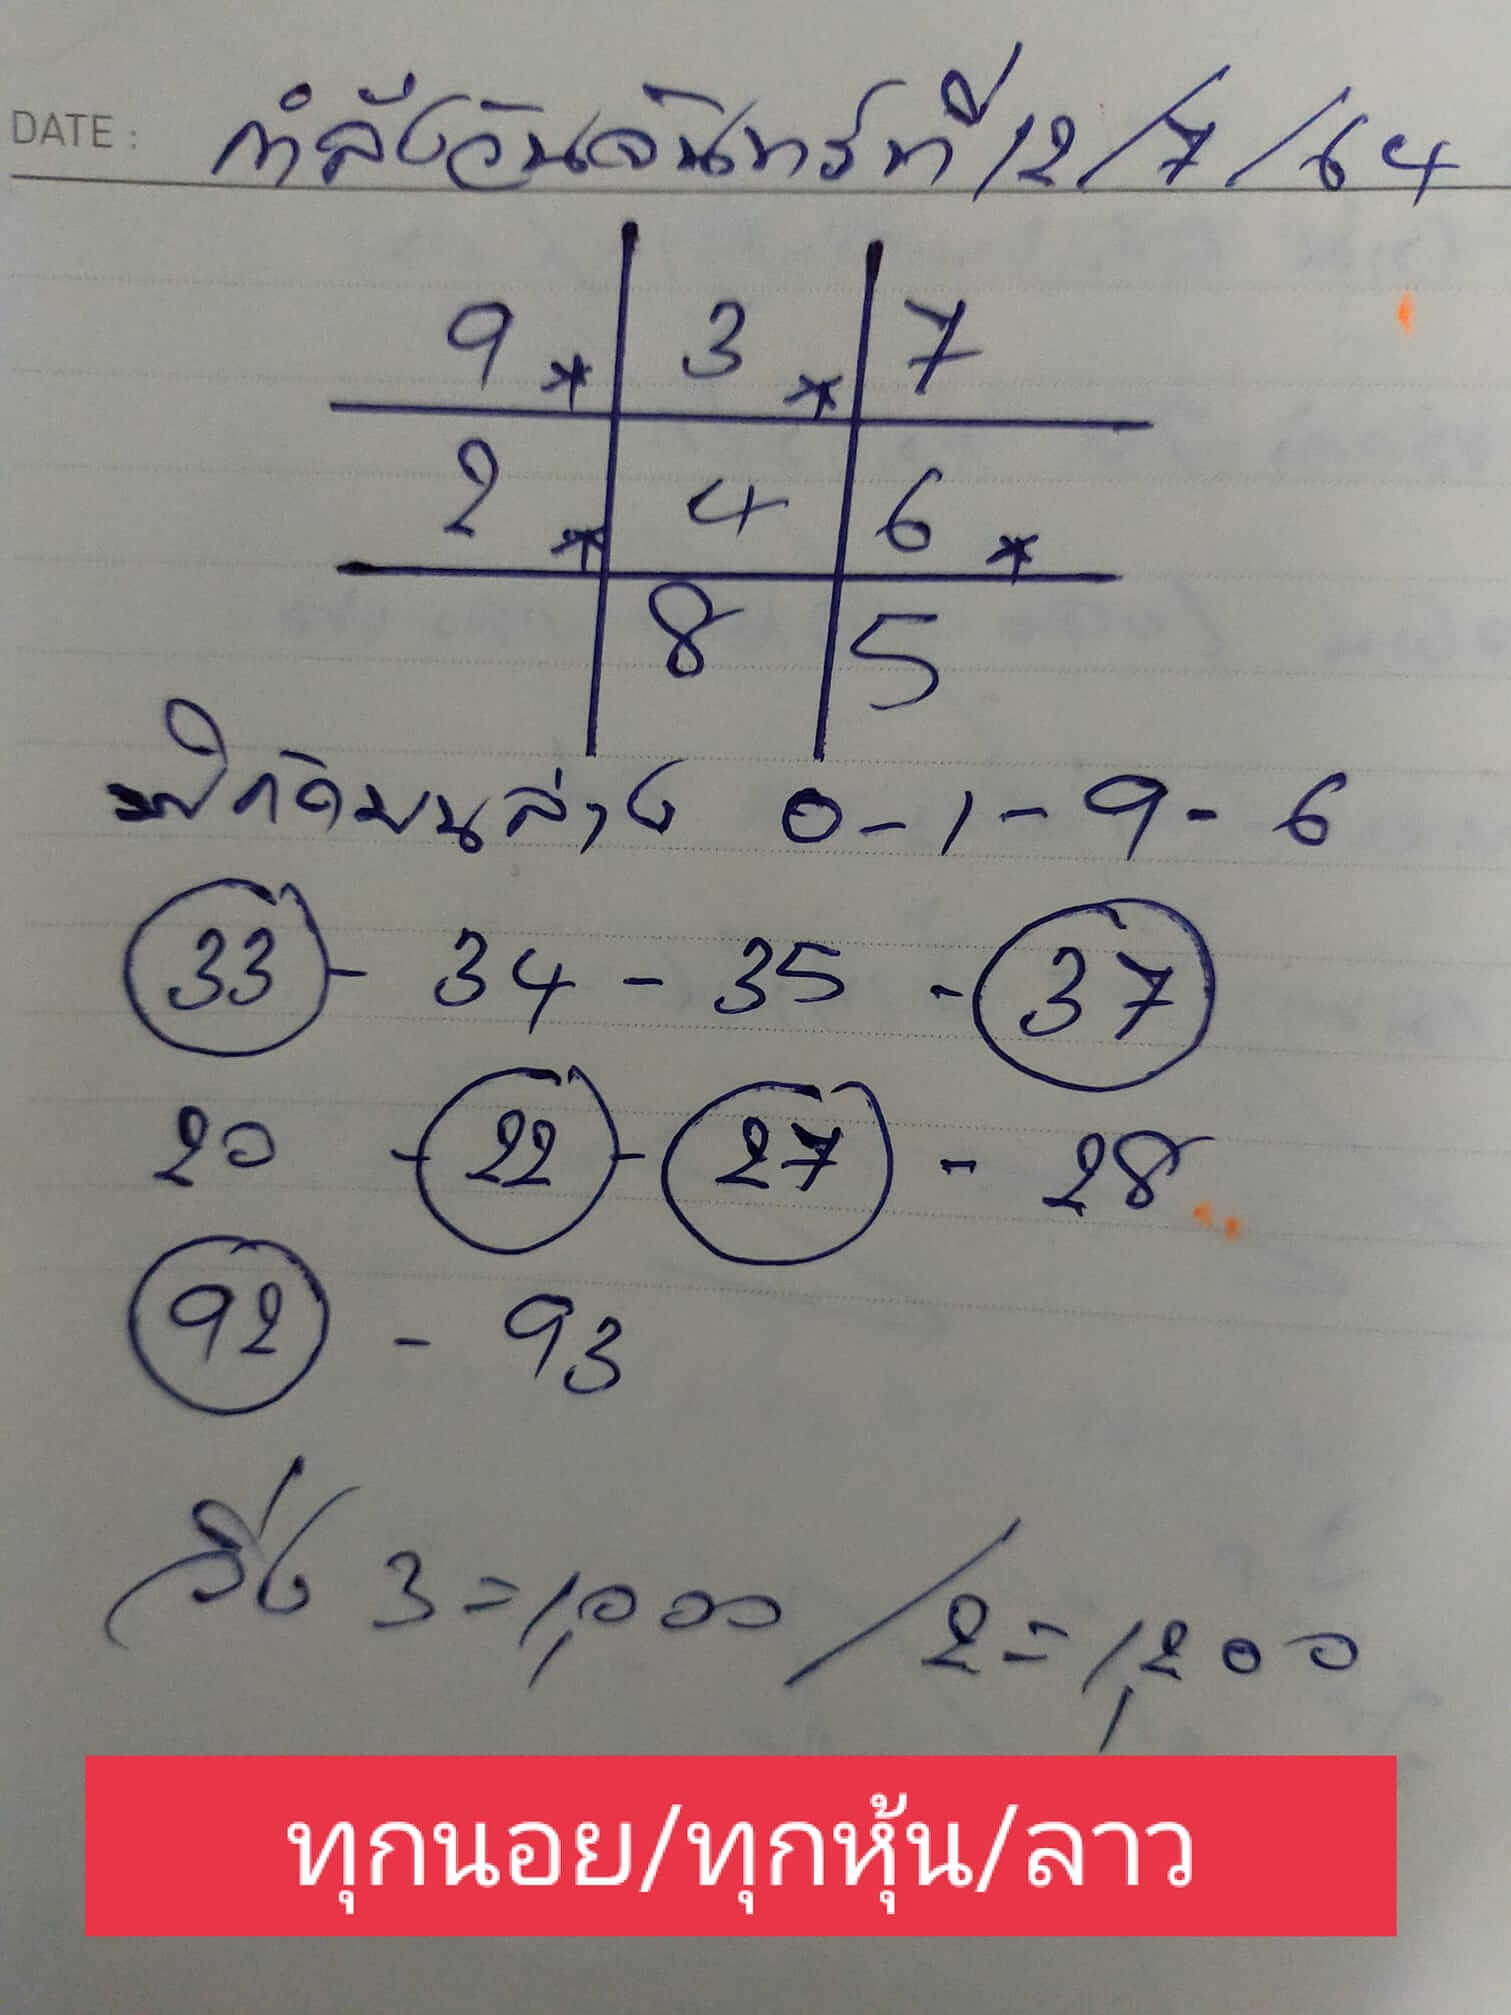 DATE :
กำลังวันจันทร์ที่ 12/7/64
9 * 3 * 7
2 * 4 6 *
8 5
พิกัดบนล่าง 0-1-9-6
33 - 34 - 35 - 37
20 - 22 - 27 - 28
92 - 93
วิ่ง 3=1,000/2=1,200
ทุกนอย/ทุกหุ้น/ลาว